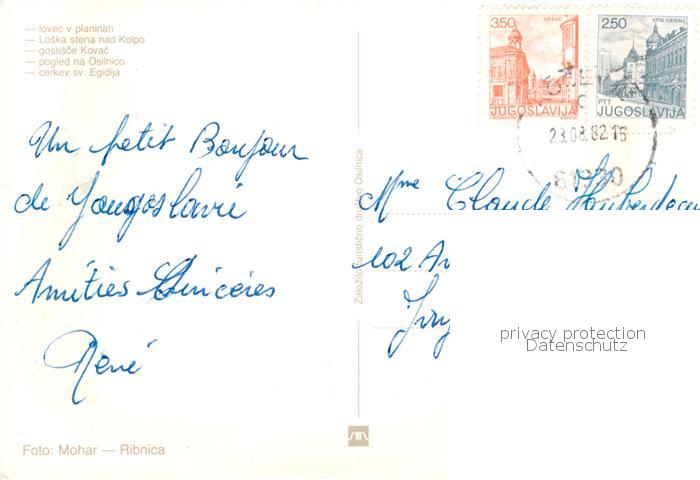 — lovec v planinah
— Loška stena nad Kolpo
— gostišče Kovač
— pogled na Osilnico
— cerkev sv. Egidija
3.50
VRŠAC
JUGOSLAVIJA
2.50
PTT
JUGOSLAVIJA
23.08.82.15
Un petit Bonjour
de Yougoslavie
Amitiés Sincères
René
Založilo turistično društvo Osilnica
Mme Claude
102 Av
privacy protection
Datenschutz
Foto: Mohar — Ribnica